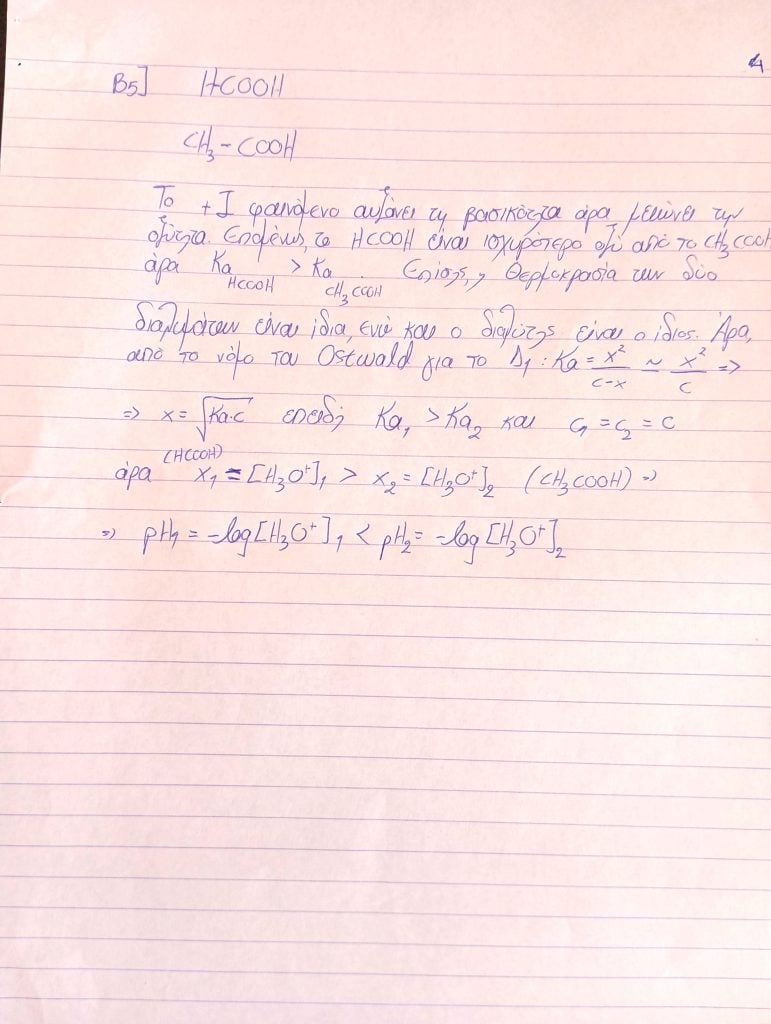 4
Β5] HCOOH
CH₃ - COOH
Το +I φαινόμενο αυξάνει τη βασικότητα άρα μειώνει την
οξύτητα. Επομένως, το HCOOH είναι ισχυρότερο οξύ από το CH₃COOH
άρα Ka HCOOH > Ka CH₃COOH. Επίσης, η θερμοκρασία των δύο
διαλυμάτων είναι ίδια, ενώ και ο διαλύτης είναι ο ίδιος. Άρα,
από το νόμο του Ostwald για το Δ₁ : Ka = x²/(c-x) ≃ x²/c =>
=> x = √(Ka·c) επειδή Ka₁ > Ka₂ και c₁ = c₂ = c
άρα (HCOOH) x₁ = [H₃O⁺]₁ > x₂ = [H₃O⁺]₂ (CH₃COOH) =>
=> pH₁ = -log[H₃O⁺]₁ < pH₂ = -log[H₃O⁺]₂